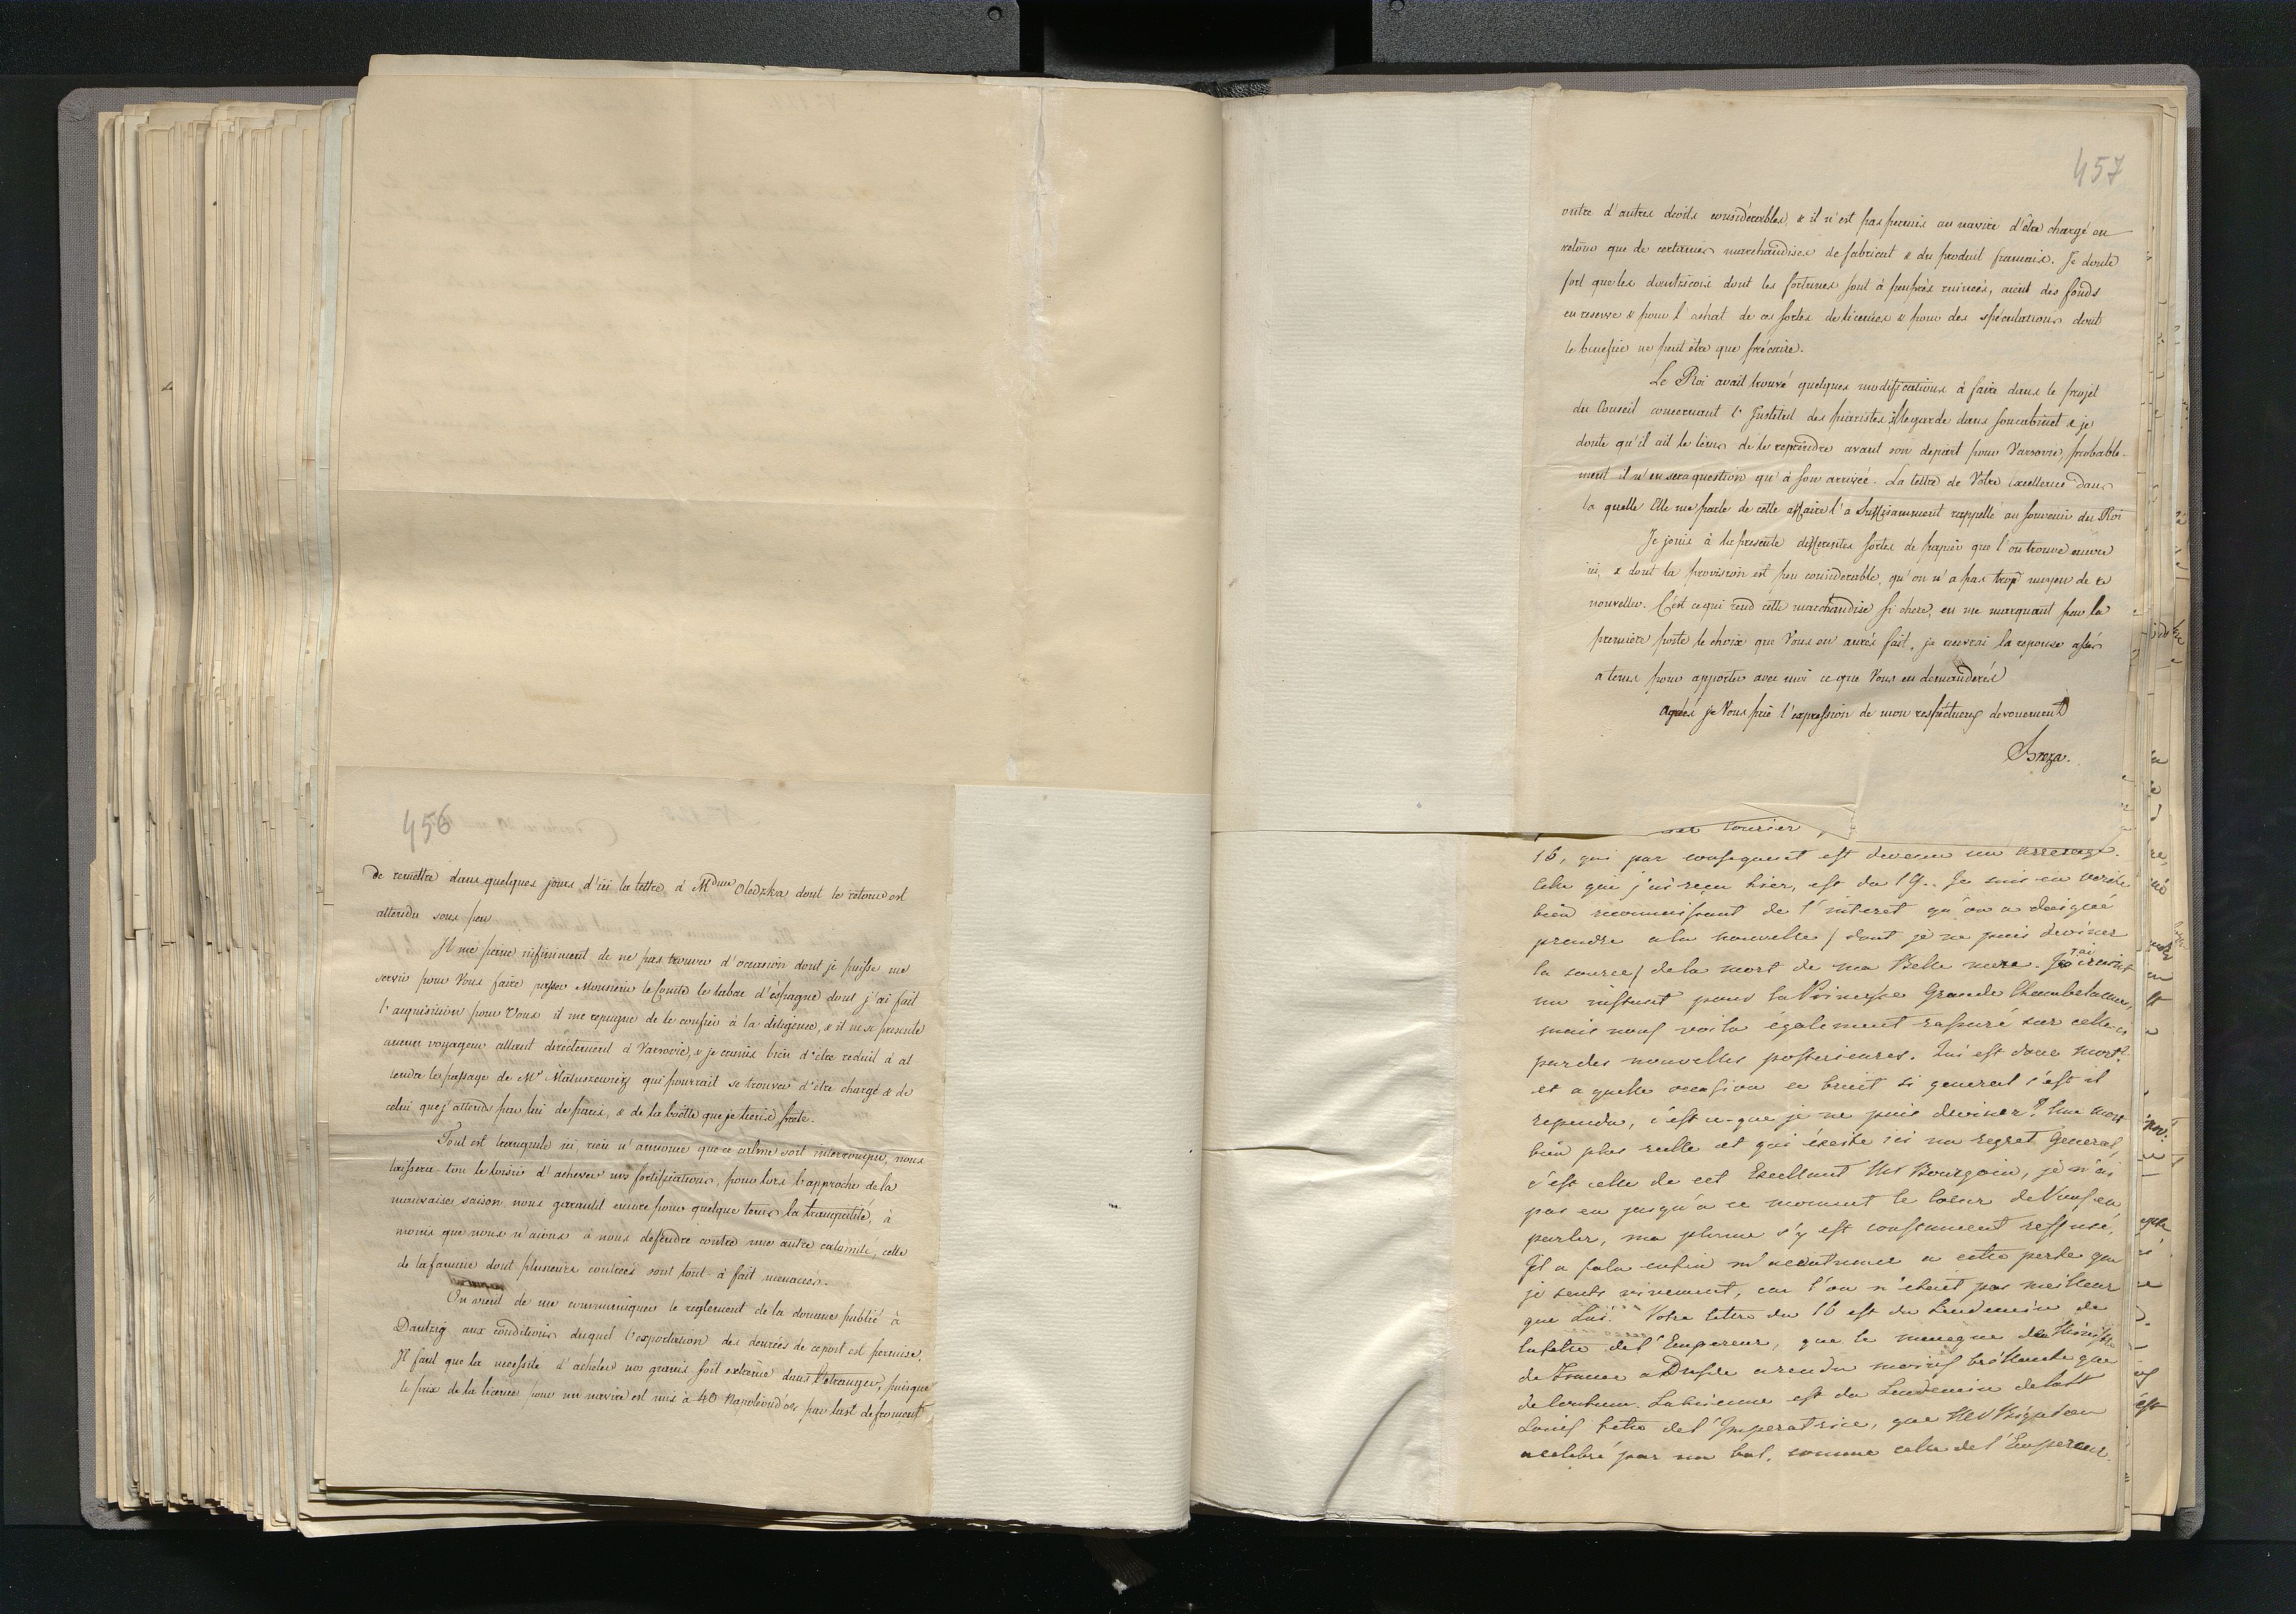 456
de remettre dans quelques jours d'ici la lettre à Mdme Oledzka dont le retour est
attendu sous peu
Il me peine infiniment de ne pas trouver d'occasion dont je puisse me
servir pour Vous faire passer Monsieur le Comte le tabac d'éspagne dont j'ai fait
l'acquisition pour Vous il me repugne de le confier à la diligence, & il ne se presente
aucun voyageur allant directement à Varsovie, & je crains bien d'être reduit à at
tendre le passage de Mr Matuszewicz qui pourrait se trouver d'être chargé & de
celui que j'attends par lui de paris, & de la boëtte que je tiens prete.
Tout est tranquile ici, rien n'annonce que ce calme soit interrompu, nous
laissera-ton le loisir d'achever nos fortifications, pour lors l'approche de la
mauvaise saison nous garantit encore pour quelque tems la tranquilité, à
moins que nous n'aions à nous deffendre contre une autre calamité, celle
de la famine dont plusieurs contrées sont tout-à fait menacées.
On vient de me communiquer le reglement de la douane publié à
Dantzig aux conditions duquel l'exportation des denrées de ce port est permise.
Il faut que la necessite d'acheter nos grains soit extreme dans l'etranger, puisque
le prix de la licence pour un navire est mis à 40 Napoleond'or par last de froment
457
outre d'autres droits considerables, & il n'est pas permis au navire d'être chargé en
retour que de certaines marchandises de fabricat & du produit francais. Je doute
fort que les dantzicois dont les fortunes sont à peuprès ruinées, aient des fonds
en reserve & pour l'achat de ces sortes de licences & pour des spéculations dont
le benefice ne peut être que précaire.
Le Roi avait trouvé quelques modifications à faire dans le projet
du Conseil concernant l'Institut des piaristes, il le garde dans son cabinet & je
doute qu'il ait le tems de le reprendre avant son depart pour Varsovie, probable-
ment il n'en sera question qu'à son arrivée. La lettre de Votre Excellence dans
la quelle Elle me parle de cette affaire l'a suffisamment rappellé au souvenir du Roi
Je joins à la presente differentes sortes de papier que l'on trouve encore
ici, & dont la provision est peu considerable, qu'on n'a pas trop moyen de re
nouveller. C'est ce qui rend cette marchandise si chere, en me marquant par la
premiere poste le choix que Vous en aurés fait, je recevrai la reponse assés
a tems pour apporter avec moi ce que Vous en demanderés
agréés je Vous prie l'expression de mon respectueux devouement
Breza.
courier,
16, qui par consequent est devenu un arrerage.
Celu que j'ai reçu hier, est du 19. Je suis en verité
bien reconnaissant de l'interet qu'on a daigné
prendre a la nouvelle / dont je ne puis deviner
la source / de la mort de ma Belle mere. J'ai craint
un instant pour la Princesse Grande Chambelanne,
mais nous voila également rassuré sur celle-ci
par des nouvelles posterieures. Qui est donc mort?
et a quelle occasion ce bruit si general s'est il
rependu, c'est ce-que je ne puis deviner? Une mort
bien plus reelle et qui éxcite ici un regret General,
c'est celle de cet Excellent Mr Bourgoin, je n'ai
pas eu jusqu'à ce moment le coeur de Vous en
parler, ma plume s'y est constament reffusé,
Il a falu enfin m'accoutumer a cette perte que
je sents vivement, car l'on n'etait pas meilleur
que Lui. Votre lettre du 16 est du Lendemain de
la fete de l'Empereur, que le manque du Ministre
de France a Dresde a rendu moins brillante que
de coutume. La mienne est du Lendemain de la St
Louis fete de l'Imperatrice, que Mr Bignon
a celebré par un bal, comme celle de l'Empereur